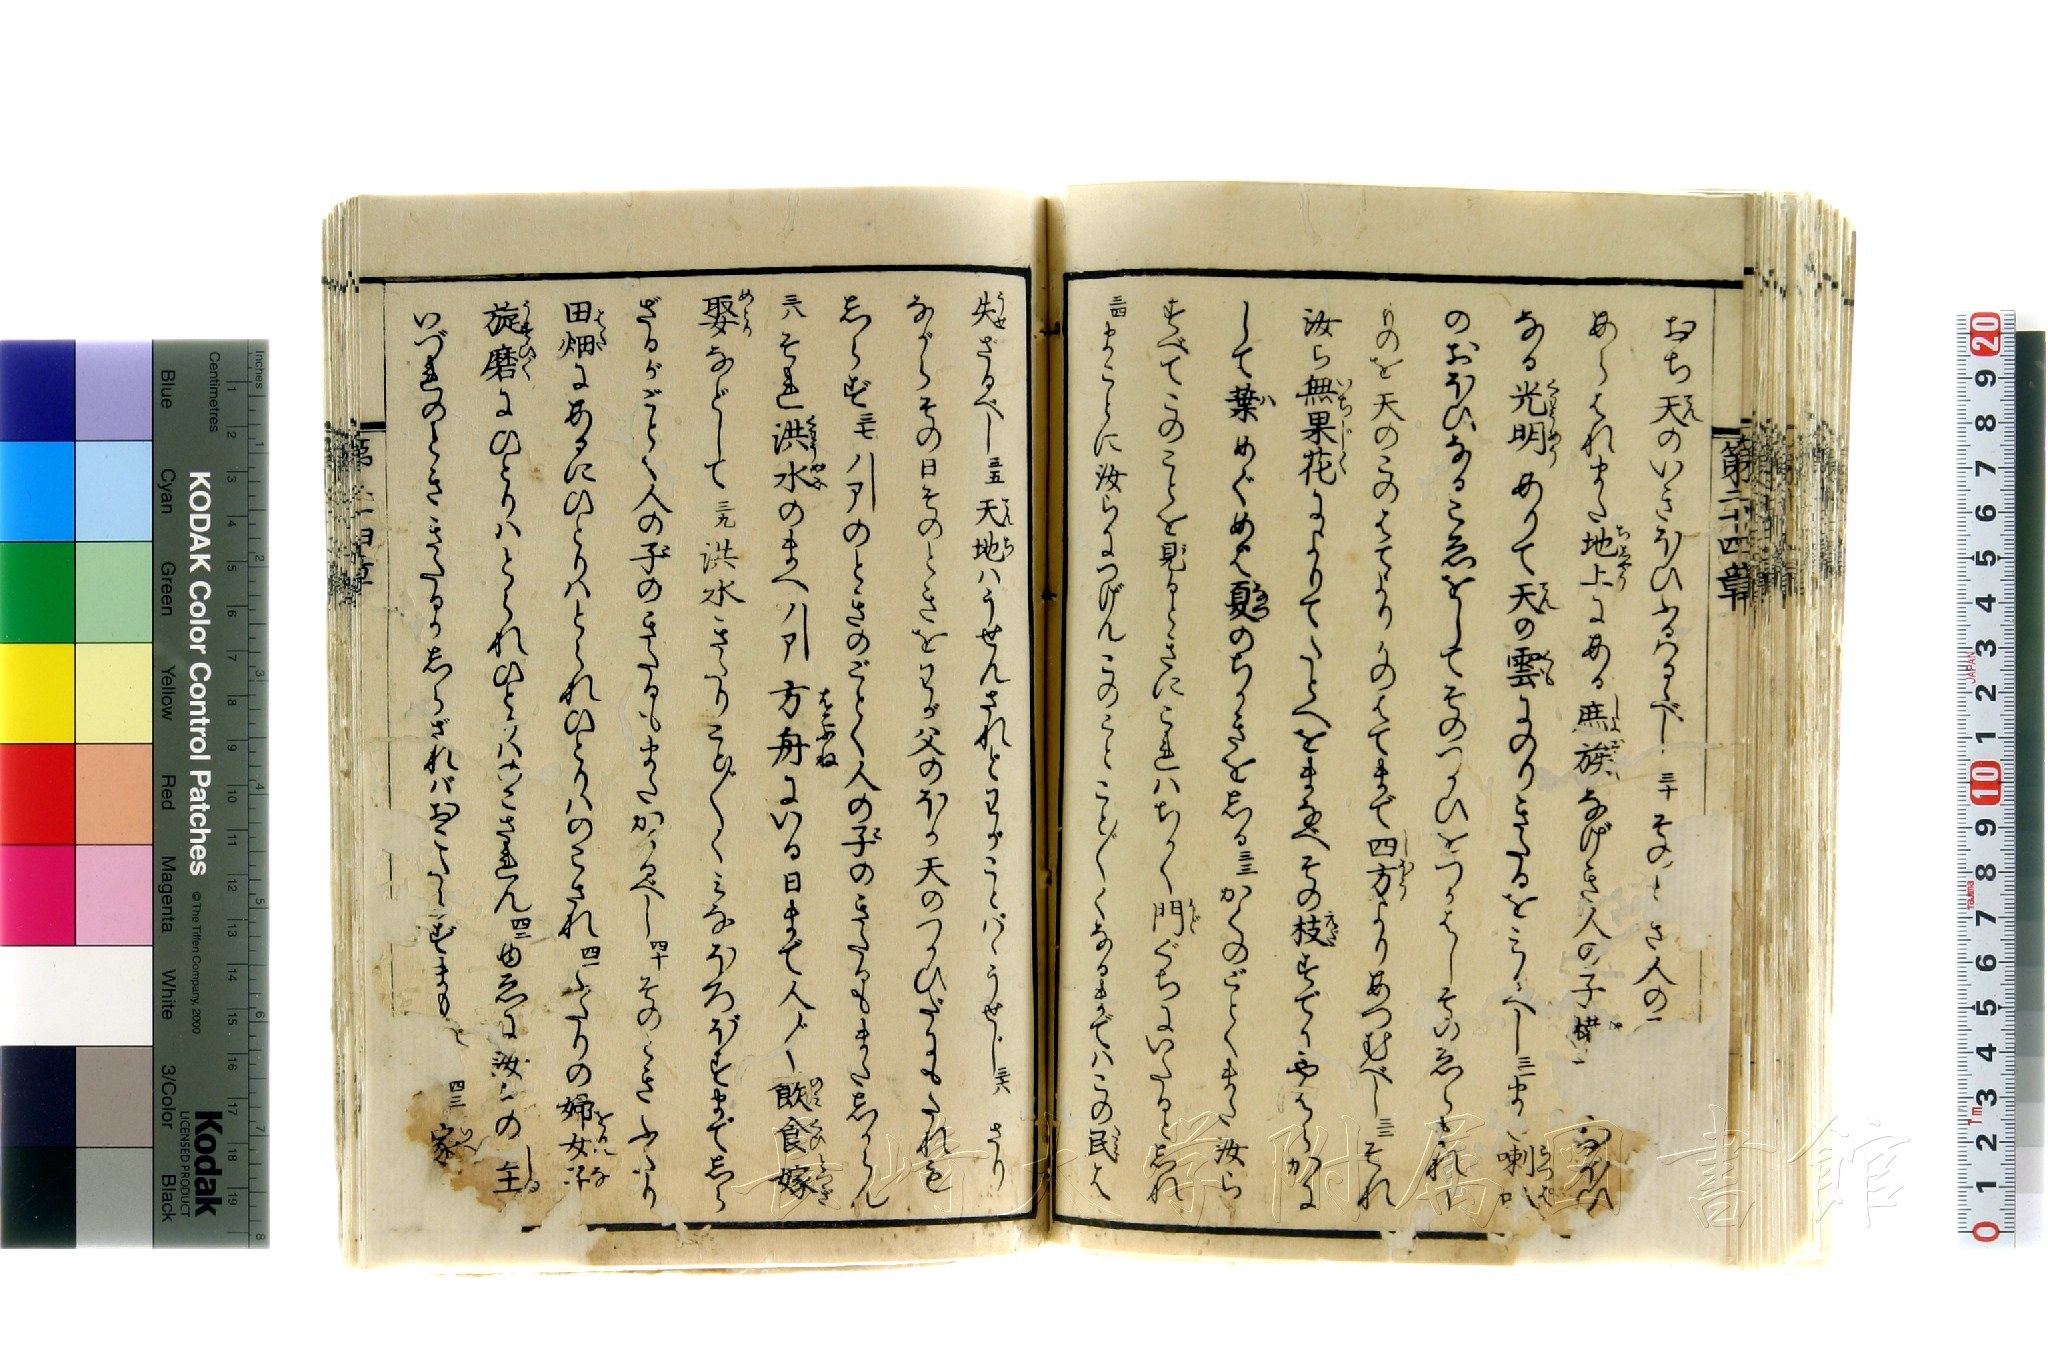 おち天のいきほひふるへるべし三十そのとき人の
あらはれまた地上にある庶族なげき人の子
なる光明ありて天の雲にのりきたるをみるべし三一また喇叭
のおほひなるこゑをしてそのつかひをつかはしそのゑらまれし
ものを天のこのはてよりかのはてまで四方よりあつむべし三二それ
汝ら無果花によりてたとへをまなべその枝すでにやはらかに
して葉めぐめば夏のちかきをしる三三かくのごとくまた汝ら
すべてこのことを見るときにこれハちかく門ぐちにいたるとしれ
三四まことに汝らにつげんこのことことごとくなるまでハこの民は
第二十四章
失ざるべし三五天地ハうせんされどわがことバハうせじ三六さり
ながらその日そのときをわが父のほか天のつかひだにもたれも
しらず三七ノアのときのごとく人の子のきたるもまたしからん
三八それ洪水のまへノア方舟にいる日まで人々飲食嫁
娶などして三九洪水きたりことごとくみなほろぼすまでしら
ざるがごとく人の子のきたるもまたかくるべし四十そのときふたり
田畑にあるにひとりハとられひとりハのこされ四一ふたりの婦女子
旋磨にひとりハとられひとりハのこされん四二由ゑに汝らの主
いづれのとききたるかしらざれバおこたらずまもれ四三家
第二十四章
KODAK Color Control Patches
© The Tiffen Company, 2000
Kodak
LICENSED PRODUCT
Blue Cyan Green Yellow Red Magenta White 3/Color Black
Centimetres
Inches
長崎大学附属図書館
JAPAN
Tajima